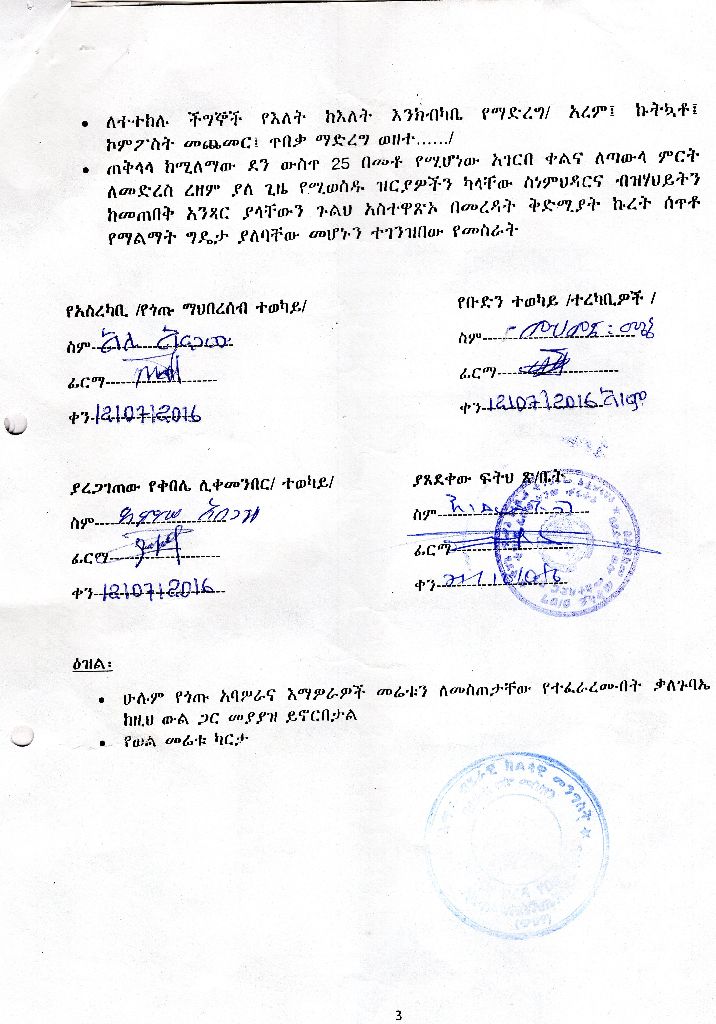 • ለተተከሉ ችግኞች የእለት ከእለት እንክብካቤ የማድረግ/ አረም፤ ኩትኳቶ፤
ኮምፖስት መጨመር፤ ጥበቃ ማድረግ ወዘተ....../
• ጠቅላላ ከሚለማው ደን ውስጥ 25 በመቶ የሚሆነው አገር በቀልና ለጣውላ ምርት
ለመድረስ ረዘም ያለ ጊዜ የሚወስዱ ዝርያዎችን ካላቸው ስነምህዳርና ብዝሃህይትን
ከመጠበቅ አንጻር ያላቸውን ጉልህ አስተዋጽኦ በመረዳት ቅድሚያት ኩረት ሰጥቶ
የማልማት ግዴታ ያለባቸው መሆኑን ተገንዝበው የመስራት
የአስረካቢ /የጎጡ ማህበረሰብ ተወካይ/
ስም
ፊርማ
ቀን 12/07/2016
የቡድን ተወካይ /ተረካቢዎች /
ስም
ፊርማ
ቀን 12/07/2016 ዓ/ም
ያረጋገጠው የቀበሌ ሊቀመንበር/ ተወካይ/
ስም
ፊርማ
ቀን 12/07/2016
ያጸደቀው ፍትህ ጽ/ቤት
ስም
ፊርማ
ቀን
ዕዝል፡
• ሁሉም የጎጡ አባዎራና እማዎራዎች መሬቱን ለመስጠታቸው የተፈራረሙበት ቃለጉባኤ
ከዚህ ውል ጋር መያያዝ ይኖርበታል
• የወል መሬቱ ካርታ
3